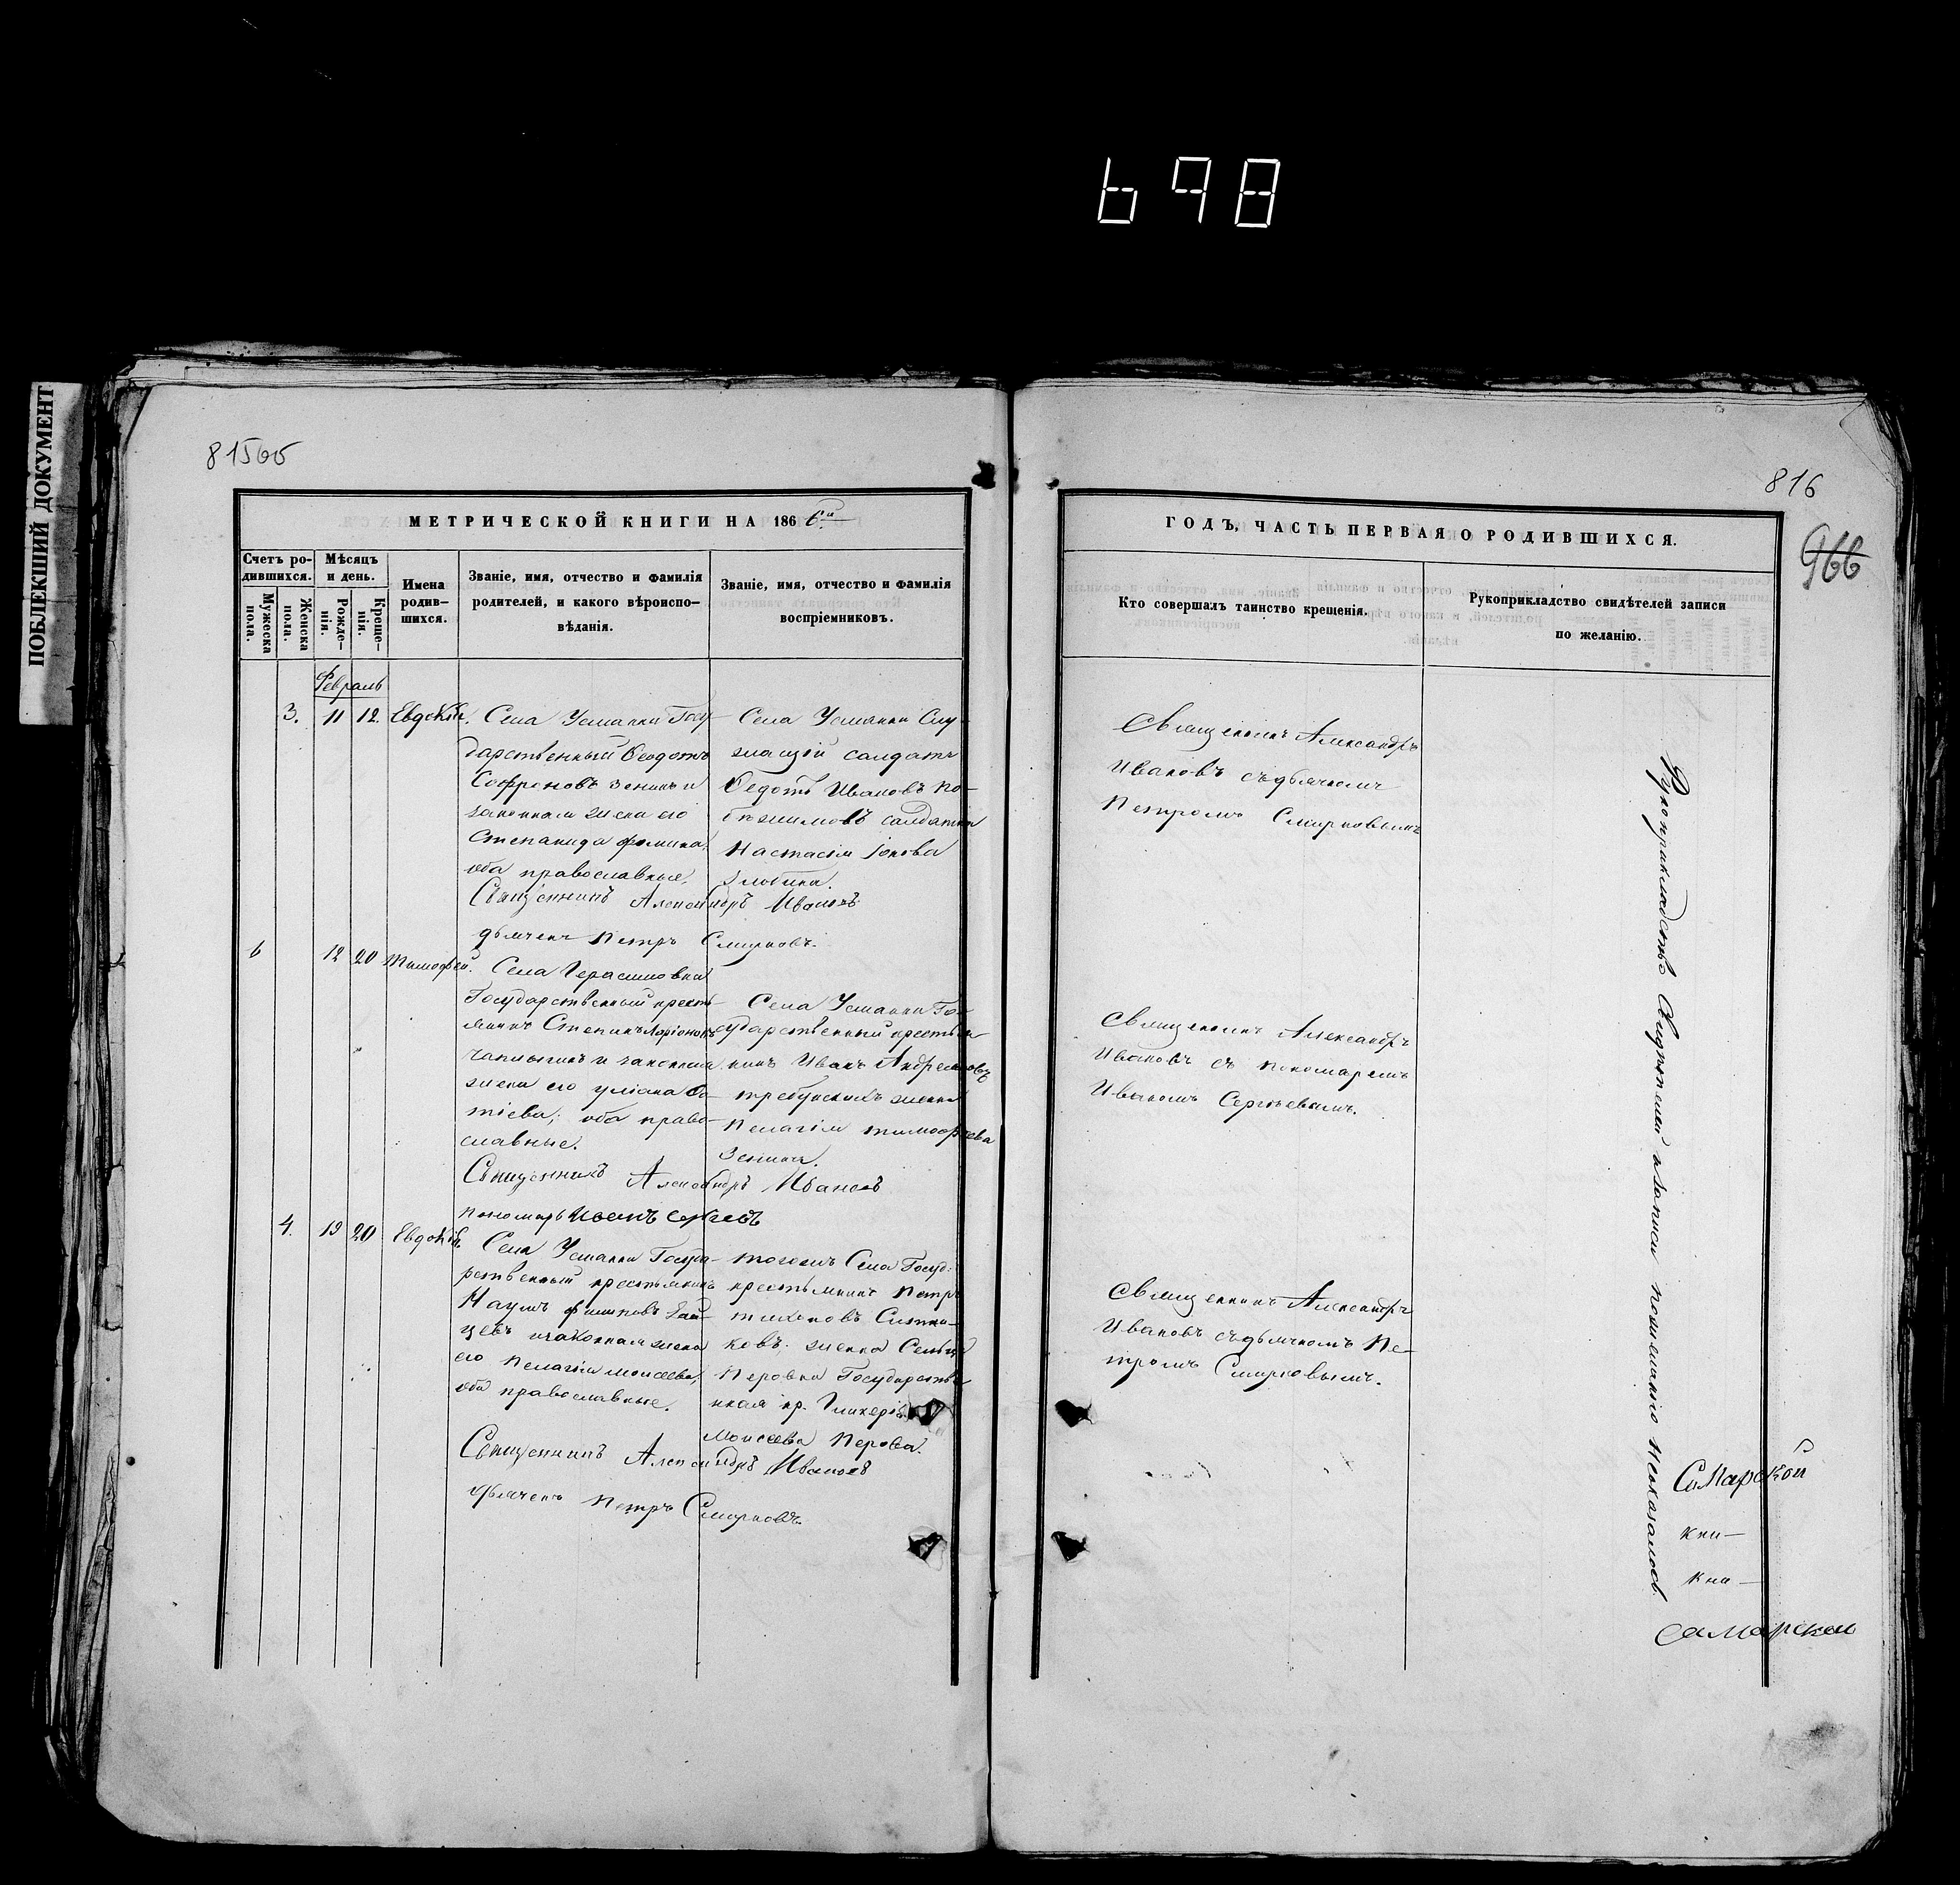 698
ПОБЛЕКШИЙ ДОКУМЕНТ
815об
816
966
МЕТРИЧЕСКОЙ КНИГИ НА 1866й
ГОДЪ, ЧАСТЬ ПЕРВАЯ О РОДИВШИХСЯ.
Счетъ ро-
дившихся.
Мужеска
пола.
Женска
пола.
Мѣсяцъ
и день.
Рожде-
нія.
Креще-
нія.
Имена
родив-
шихся.
Званіе, имя, отчество и фамилія
родителей, и какого вѣроиспо-
вѣданія.
Званіе, имя, отчество и фамилія
воспріемниковъ.
Кто совершалъ таинство крещенія.
Рукоприкладство свидѣтелей записи
по желанію.
Февраль
3. 11 12. Евдокія.
Села Усманки Госу-
дарственный Ѳеодотъ
Софроновъ Зенинъ и
законная жена его
Степанида Фомина,
оба православные.
Села Усманки Слу-
жащій солдатъ
Ѳедотъ Ивановъ По-
солдатка
Настасія Іонова
Злобина.
Священникъ Александръ
Ивановъ съ дьячкомъ
Петромъ Смирновымъ
Священникъ Александръ Ивановъ
дьячекъ Петръ Смирновъ.
6 12 20 Тимофей.
Села Герасимовки
Государственный кресть-
янинъ Степанъ Ларіоновъ
Чаплыгинъ и законная
жена его Уліана Фо-
тіева; оба право-
славные.
Села Усманки Го-
сударственный крестья-
нинъ Иванъ Андреяновъ
женка
Пелагія Тимофеева
Зенина.
Священникъ Александръ
Ивановъ съ пономаремъ
Иваномъ Сергѣевымъ.
Священникъ Александръ Ивановъ
пономарь Иванъ Сергѣевъ
4. 19 20 Евдокія.
Села Усманки Госуда-
рственный крестьянинъ
Наумъ Филиповъ Зай-
цевъ и законная жена
его Пелагія Моисеева,
оба православные.
тогожъ Села Госуд:
крестьянинъ Петръ
Тихоновъ Ситни-
ковъ; женка Сельца
Перовки Государстве-
нная кр. Гликерія
Моисеева Перова.
Священникъ Александръ
Ивановъ съ дьячкомъ Пе-
тромъ Смирновымъ.
Священникъ Александръ Ивановъ
дьячекъ Петръ Смирновъ.
Рукоприкладство Свидѣтелей к записи по желанію неоказалось.
Самарской
кни-
кни-
Самарской